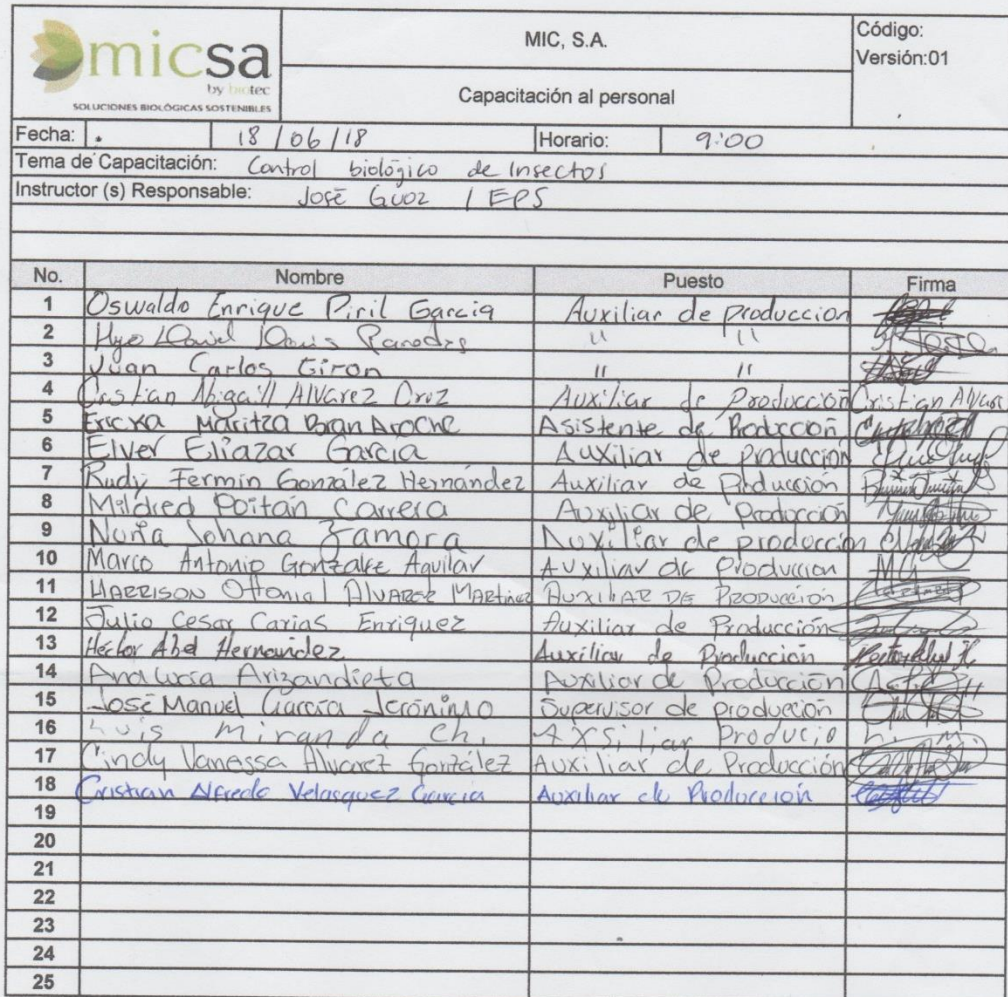 micsa
by biotec
SOLUCIONES BIOLÓGICAS SOSTENIBLES
MIC, S.A.
Capacitación al personal
Código:
Versión:01
Fecha: 18/06/18 Horario: 9:00
Tema de Capacitación: Control biológico de Insectos
Instructor (s) Responsable: José Guoz / EPS
No. Nombre Puesto Firma
1 Oswaldo Enrique Piril Garcia Auxiliar de produccion
2 Paredes " "
3 Juan Carlos Giron " "
4 Cristian Abigaill Alvarez Cruz Auxiliar de Producción Cristian Alvarez
5 Ericka Maritza Bran Aroche Asistente de Producción
6 Elver Eliazar Garcia Auxiliar de producción
7 Rudy Fermin González Hernández Auxiliar de Producción
8 Mildred Poitán Carrera Auxiliar de Producción
9 Nuria Johana Zamora Auxiliar de producción
10 Marco Antonio Gonzalez Aguilar Auxiliar de Produccion MG
11 HARRISON Ottonial ALVAREZ MARtinez AUXILIAR DE PRODUCCIÓN
12 Julio Cesar Carias Enriquez Auxiliar de Producción
13 Héctor Abel Hernandez. Auxiliar de Producción
14 Ana Lucía Arizandieta Auxiliar de Producción
15 José Manuel García Jerónimo Supervisor de producción
16 Luis miranda ch. AXSiliar Producio L. m.
17 Cindy Vanessa Alvarez González Auxiliar de Producción
18 Cristian Alfredo Velasquez Garcia Auxiliar de Producción
19
20
21
22
23
24
25